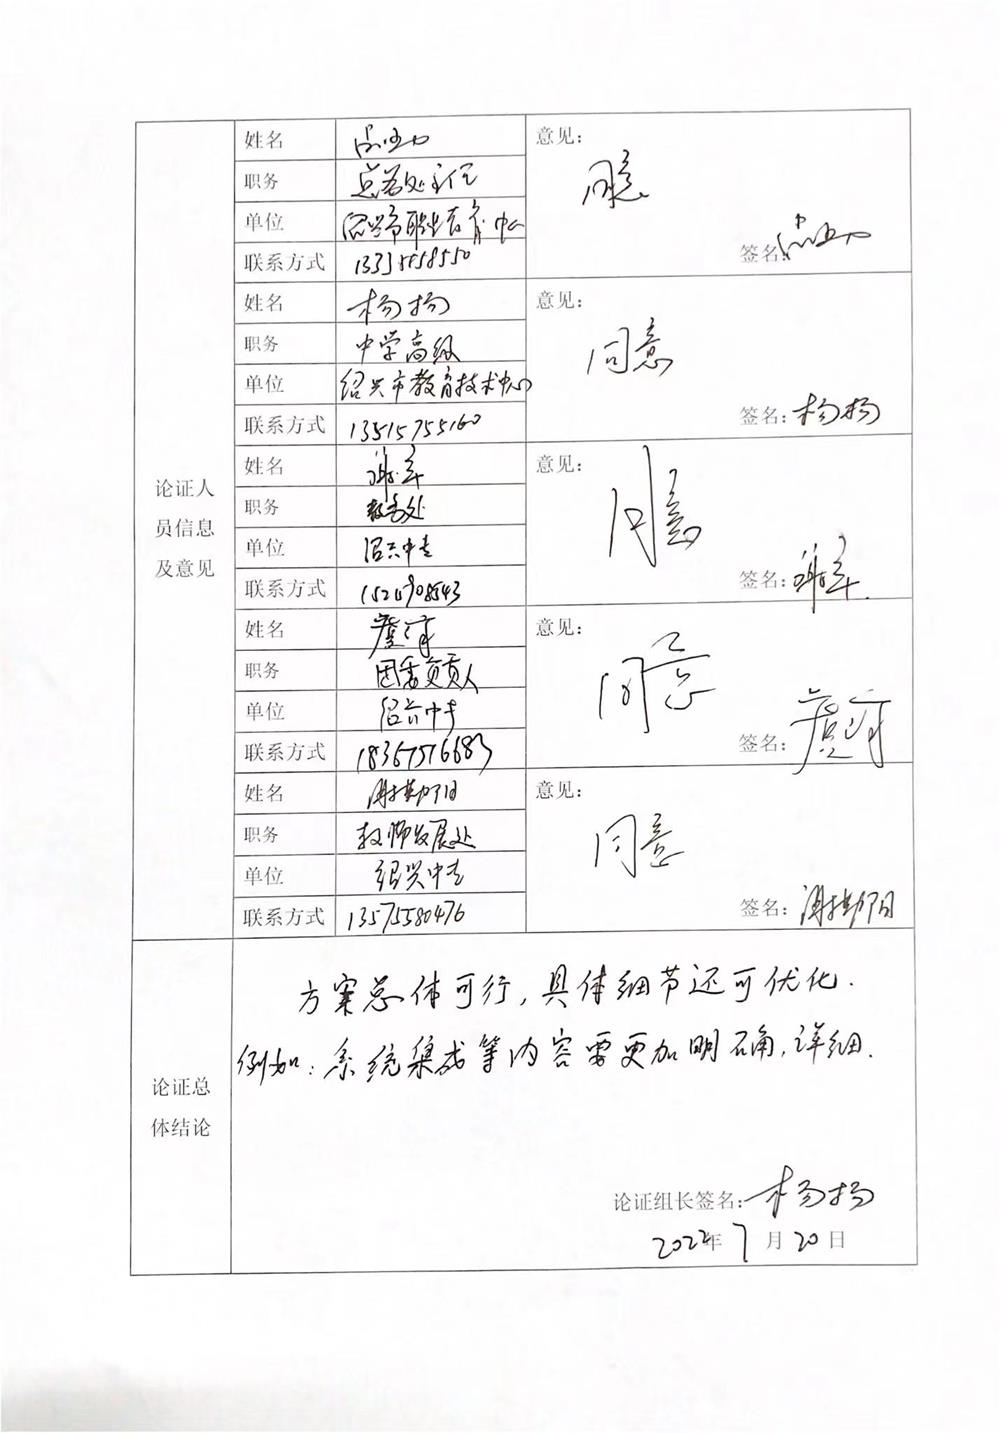 姓名
意见：
同意
职务 总务处主任
单位 绍兴市职业教育中心
签名：
联系方式
姓名 杨扬
意见：
职务 中学高级
同意
单位 绍兴市教育技术中心
联系方式 13515755160
签名：杨扬
姓名
意见：
同意
论证人
员信息
及意见
职务 教务处
单位 绍兴中专
签名：
联系方式
姓名
意见：
同意
职务 团委负责人
单位 绍兴中专
签名：
联系方式 18367516683
姓名 谢勤阳
意见：
职务 教师发展处
同意
单位 绍兴中专
联系方式 13575580476
签名：谢勤阳
论证总
体结论
方案总体可行，具体细节还可优化.
例如：系统集成等内容要更加明确，详细.
论证组长签名：杨扬
2022年7月20日